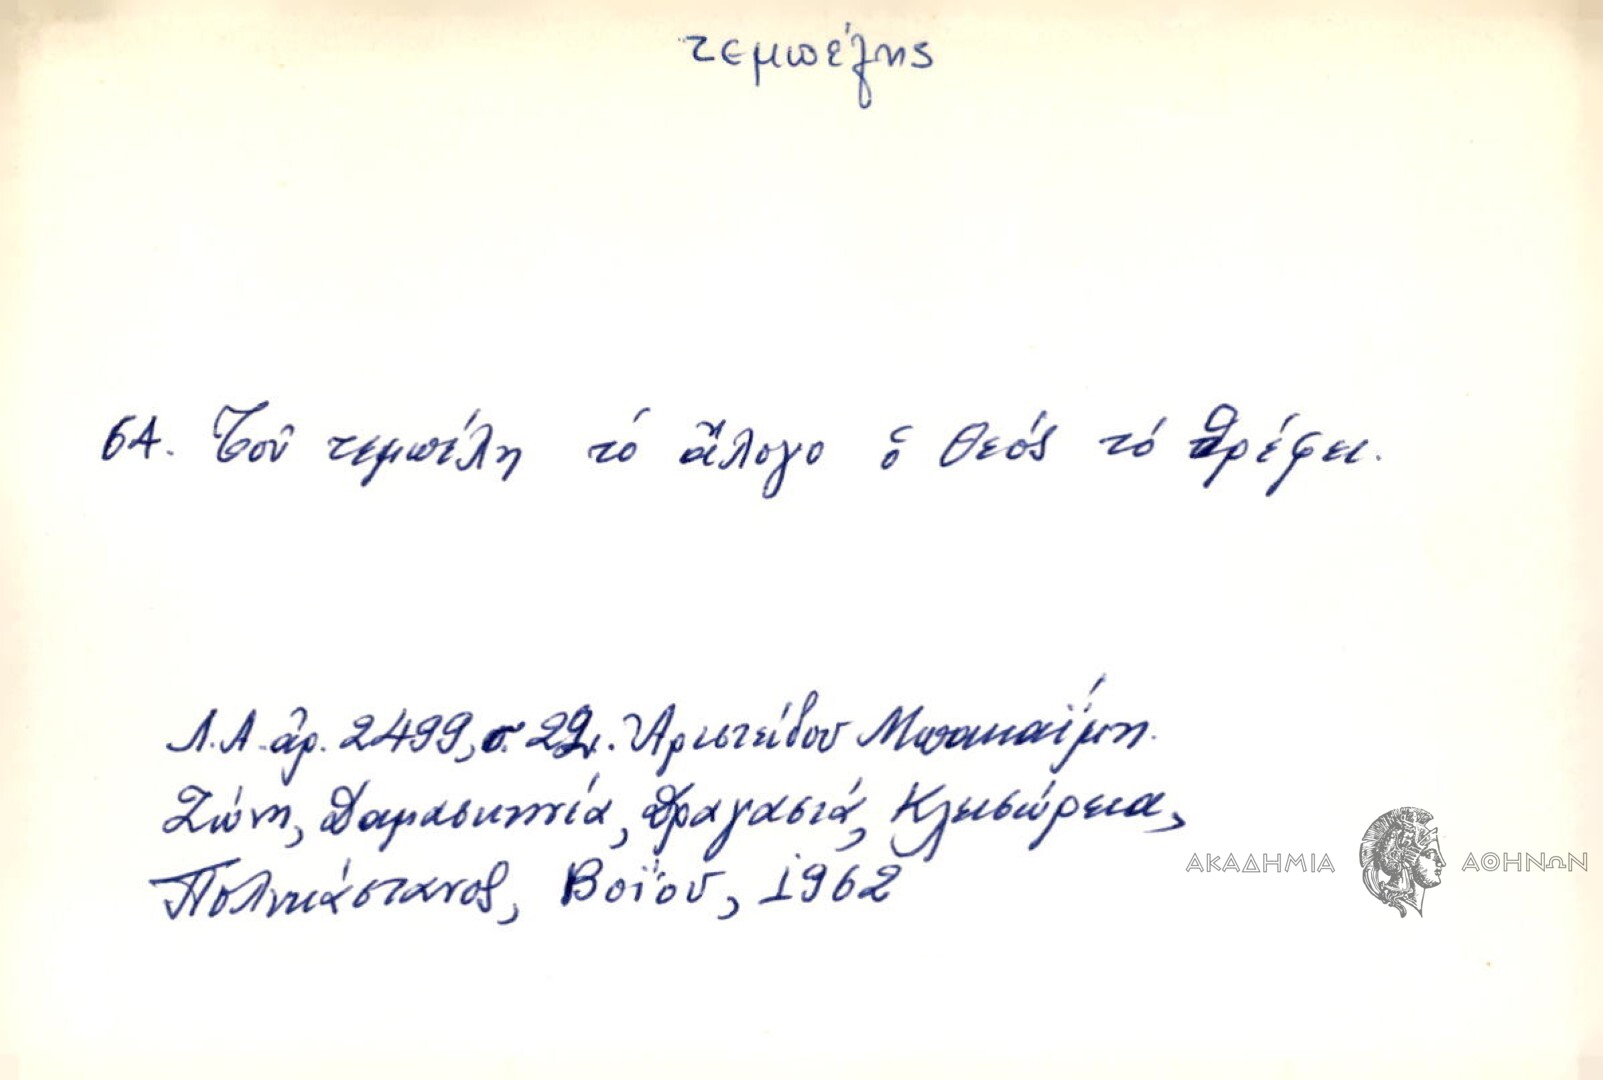 τεμπέλης
64. Τοῦ τεμπέλη τό ἄλογο ὁ Θεός τό θρέφει.
Λ.Α. ἀρ. 2499, σ. 22, Ἀριστείδου Μπακαΐμη
Ζώνη, Δαμασκηνιά, Δραγασιά, Κλεισώρεια,
Πολυκάστανος, Βοΐου, 1962
ΑΚΑΔΗΜΙΑ ΑΘΗΝΩΝ